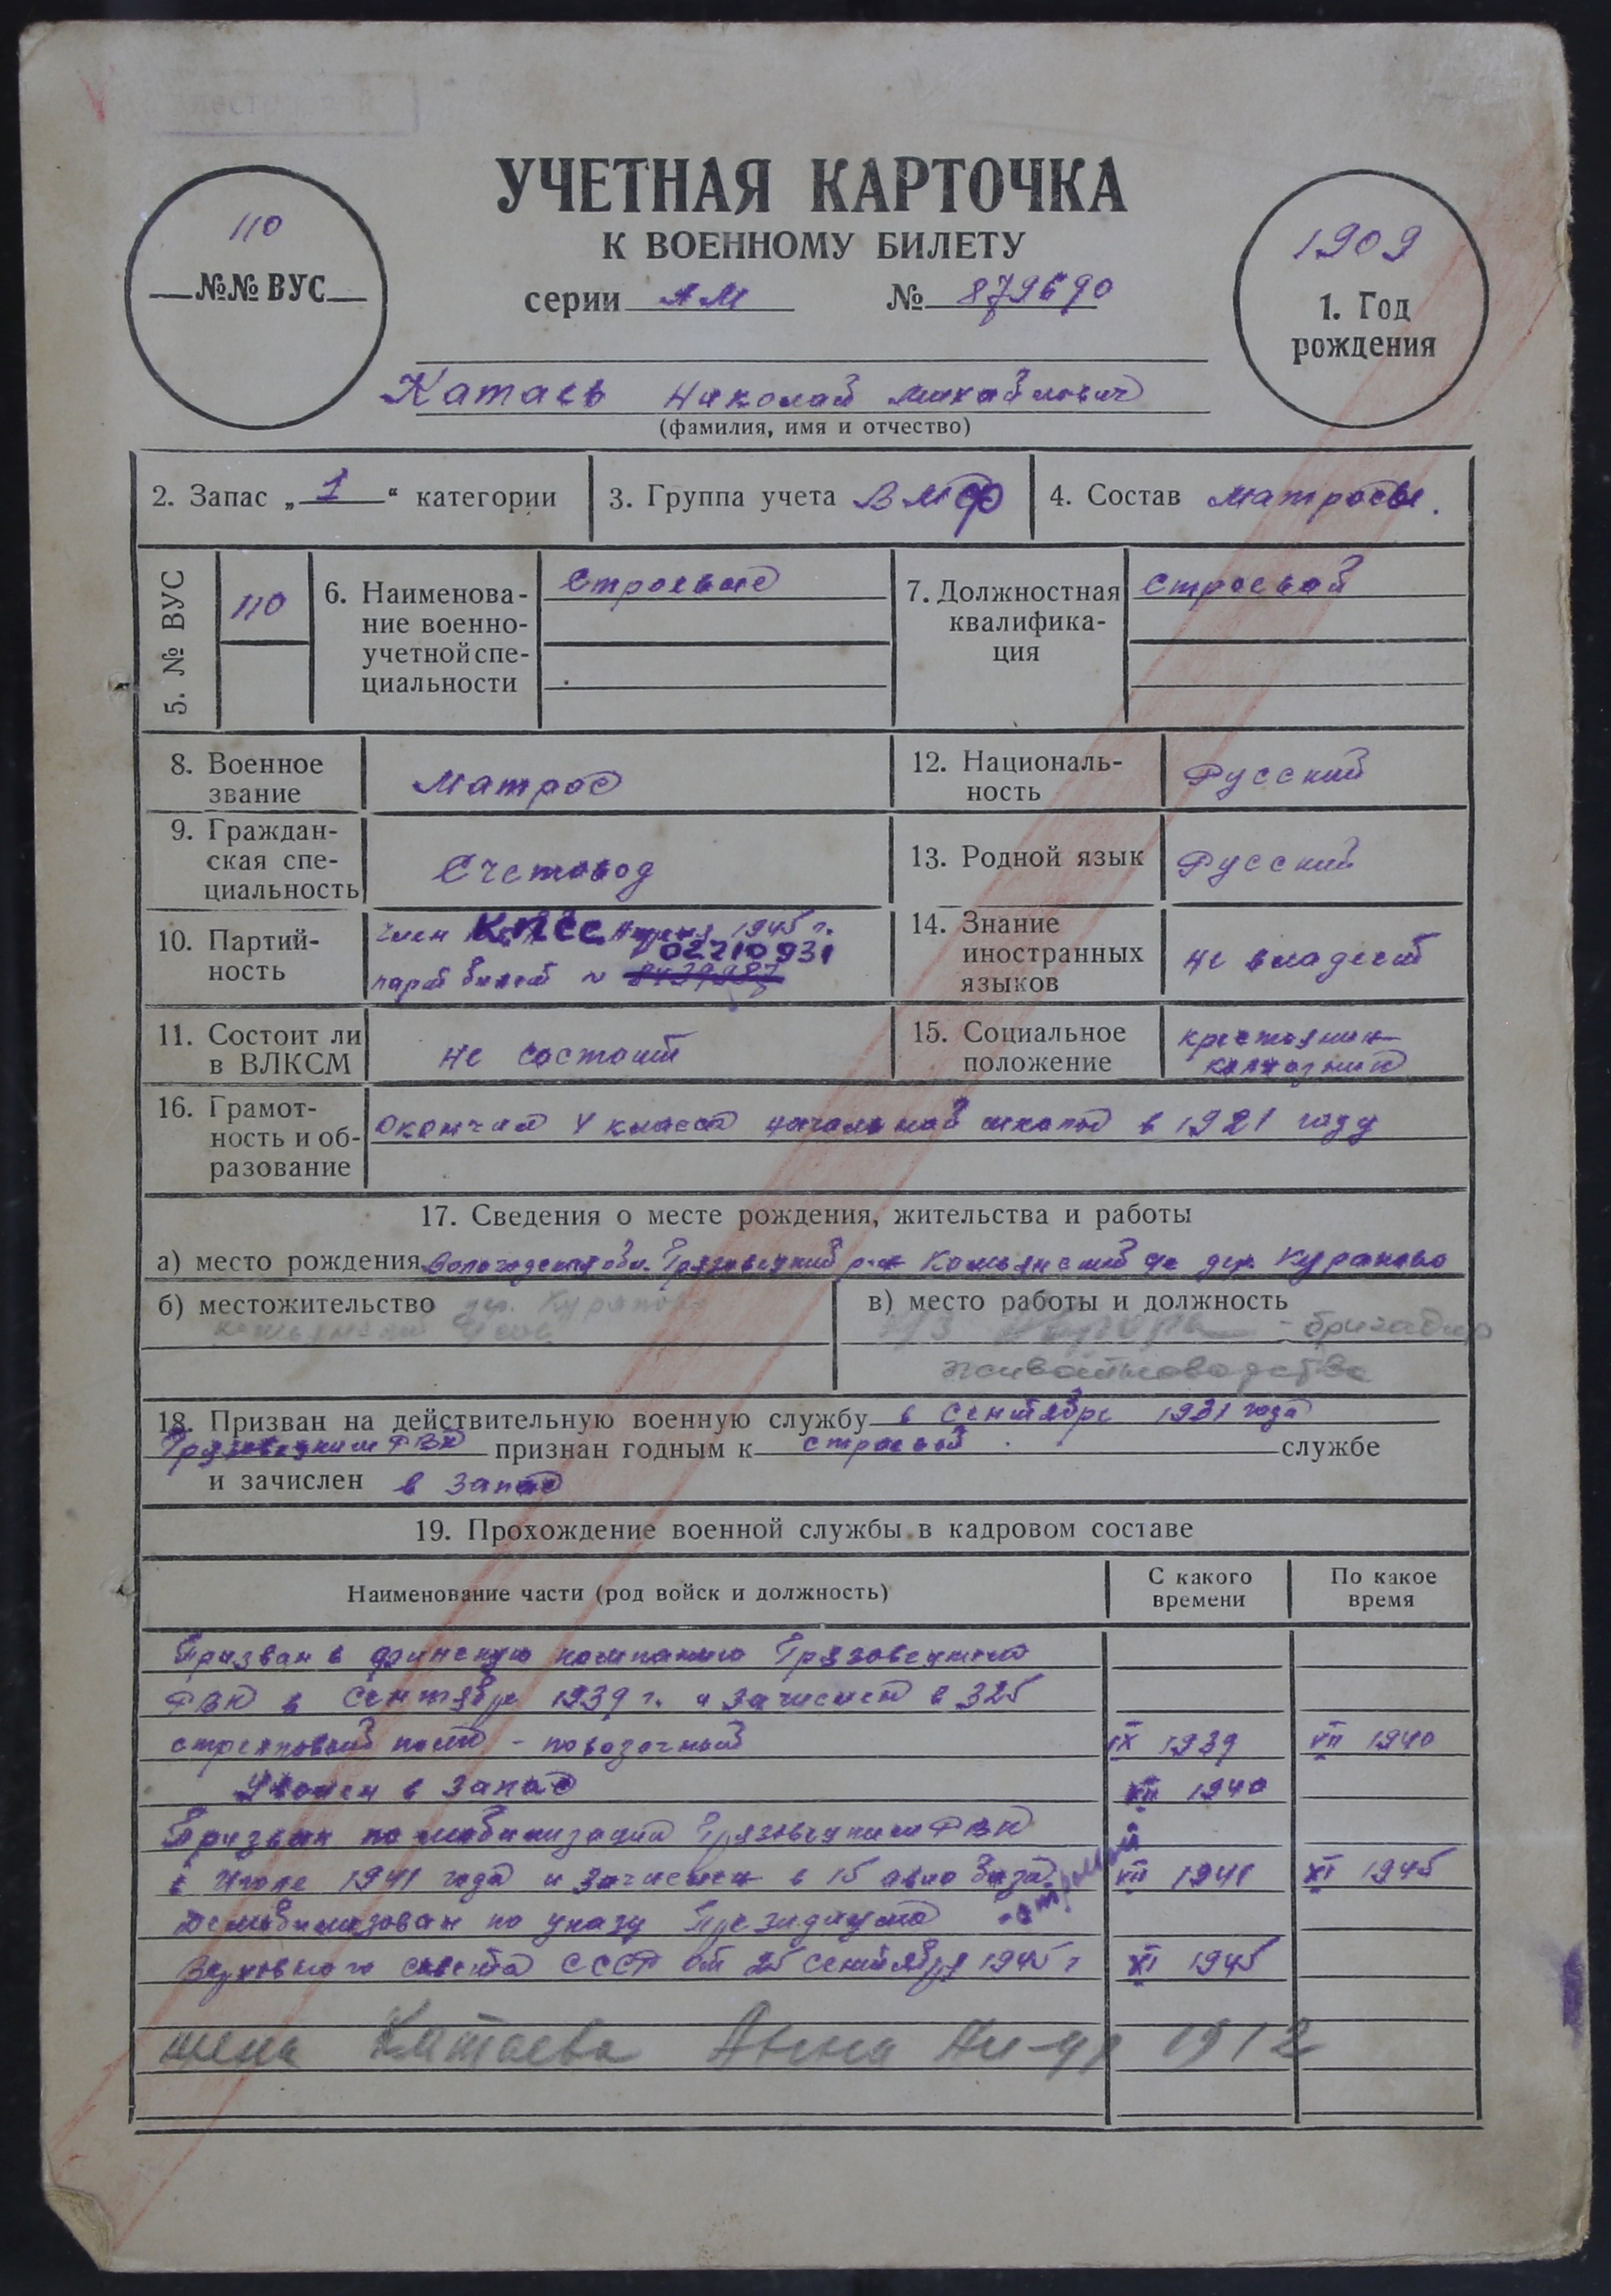 УЧЕТНАЯ КАРТОЧКА
К ВОЕННОМУ БИЛЕТУ
серии АМ № 879690
110
№№ ВУС
1909
1. Год
рождения
Катаев Николай Михайлович
(фамилия, имя и отчество)
2. Запас „ 1 “ категории
3. Группа учета ВМФ
4. Состав Матросы.
5. № ВУС
110
6. Наименова-
ние военно-
учетной спе-
циальности
Строевые
7. Должностная
квалифика-
ция
Строевой
8. Военное
звание
Матрос
12. Националь-
ность
Русский
9. Граждан-
ская спе-
циальность
Счетовод
13. Родной язык
Русский
10. Партий-
ность
член КПСС апреля 1945 г.
02210931
парт билет №
14. Знание
иностранных
языков
не владеет
11. Состоит ли
в ВЛКСМ
не состоит
15. Социальное
положение
крестьянин
колхозник
16. Грамот-
ность и об-
разование
окончил 4 класса начальной школы в 1921 году
17. Сведения о месте рождения, жительства и работы
а) место рождения Вологодская обл. Грязовецкий р-н Комьянский с/с дер. Кураново
б) местожительство дер.
Комьянский
в) место работы и должность
- бригадир
животноводства
18. Призван на действительную военную службу в сентябре 1931 года
Грязовецким РВК признан годным к строевой службе
и зачислен в запас
19. Прохождение военной службы в кадровом составе
Наименование части (род войск и должность)
С какого
времени
По какое
время
Призван в финскую компанию Грязовецким
РВК в сентябре 1939 г. и зачислен в 325
стрелковый полк - повозочный IX 1939 VII 1940
Уволен в запас VII 1940
Призван по мобилизации Грязовецким РВК
в Июле 1941 года и зачислен в 15 авио база VII 1941 XI 1945
Демобилизован по указу Президиума
Верховного совета СССР от 25 сентября 1945 г XI 1945
жена Катаева Анна 1912